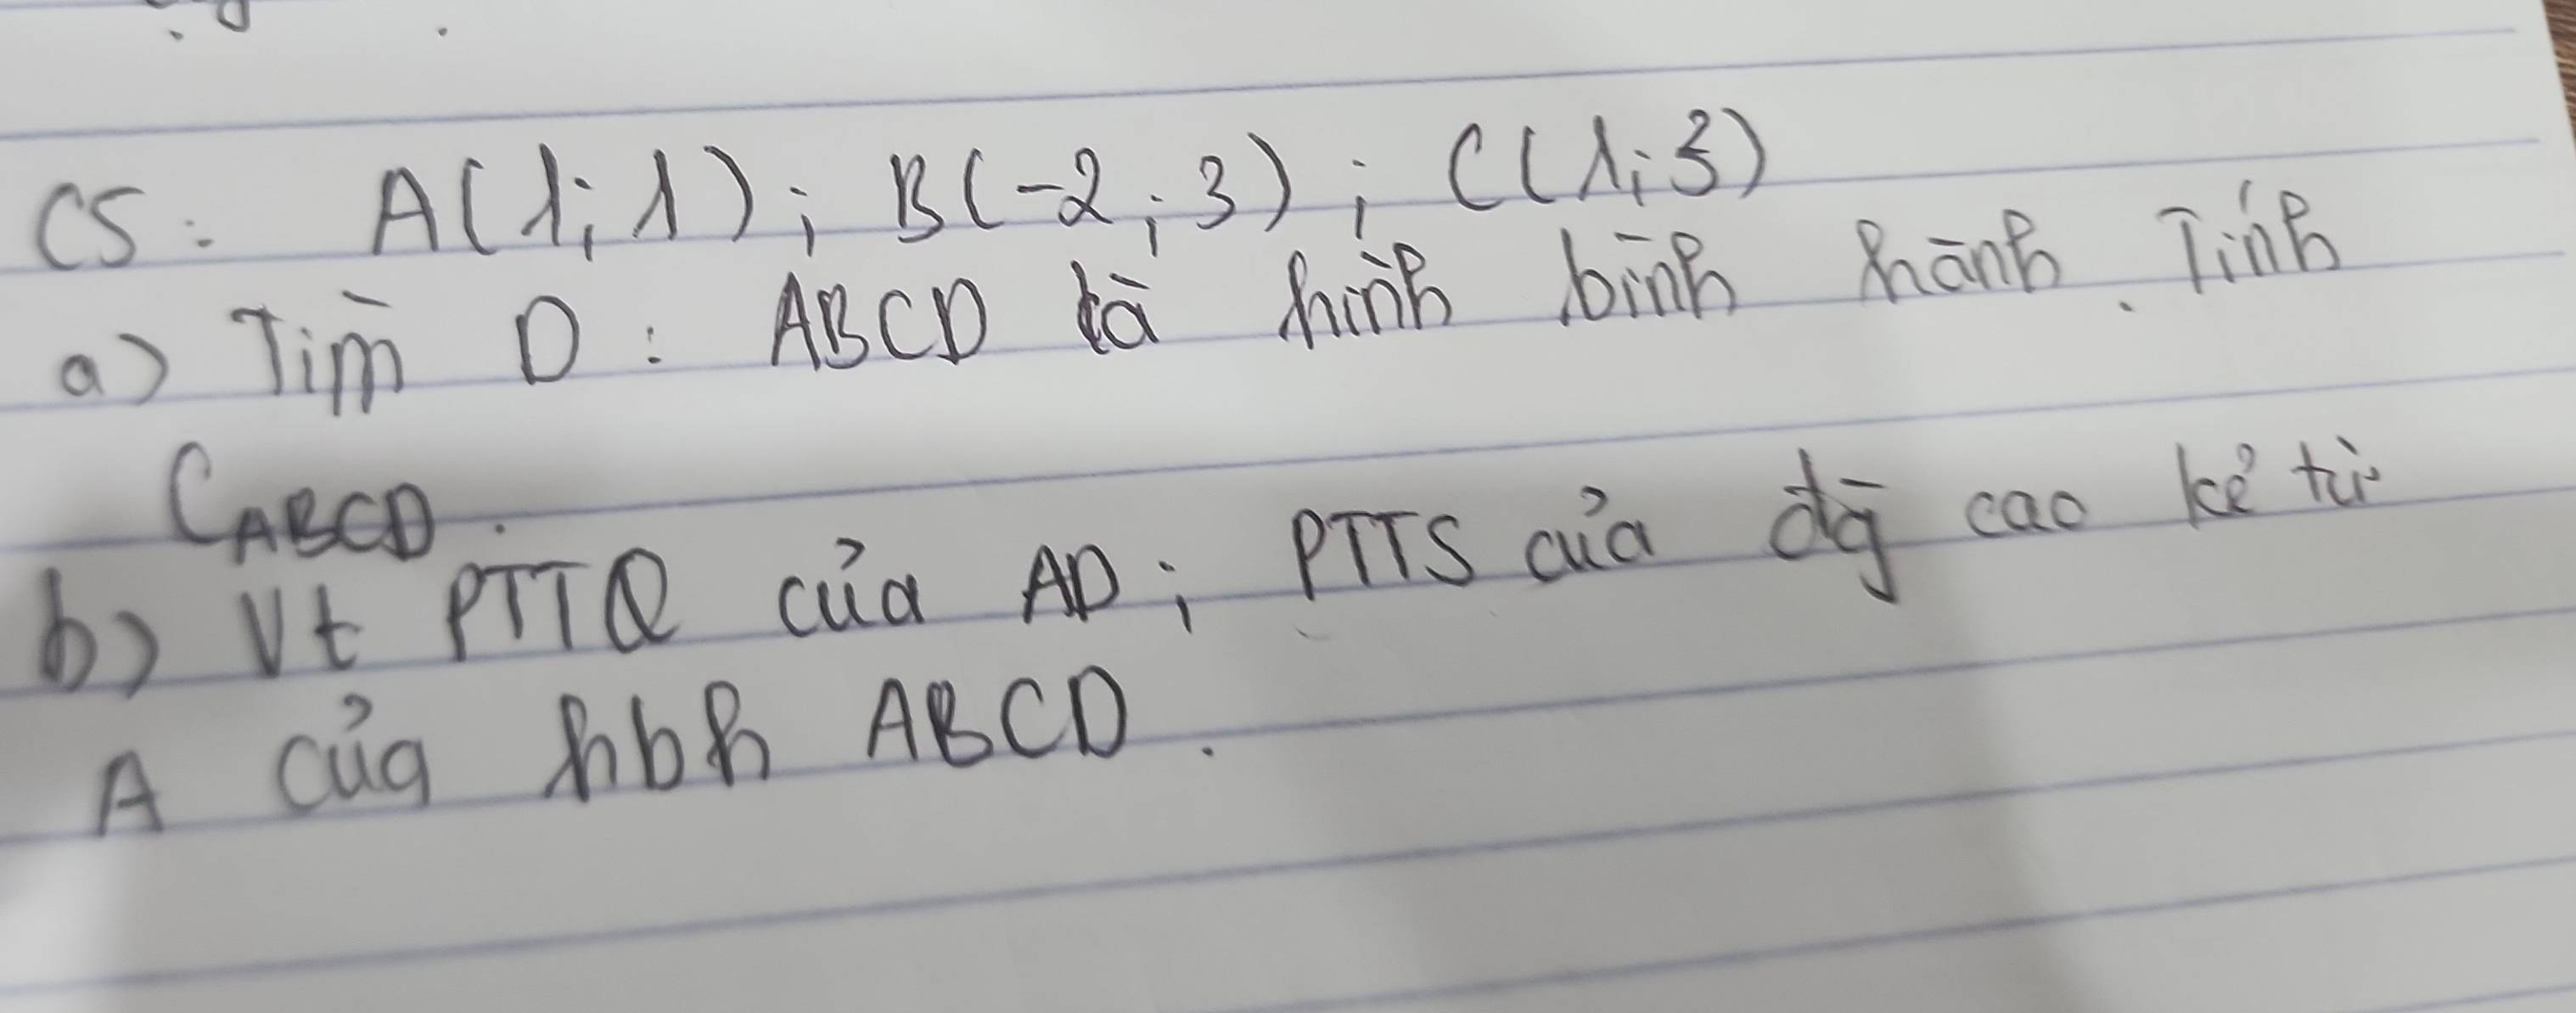 C5: A(1;1); B(-2;3); C(1;3)
a) Tìm D: ABCD là hình bình hành. Tính
C ABCD.
b) Vt PTTQ của AD; PTTS của đg cao kẻ từ
A của hbh ABCD.